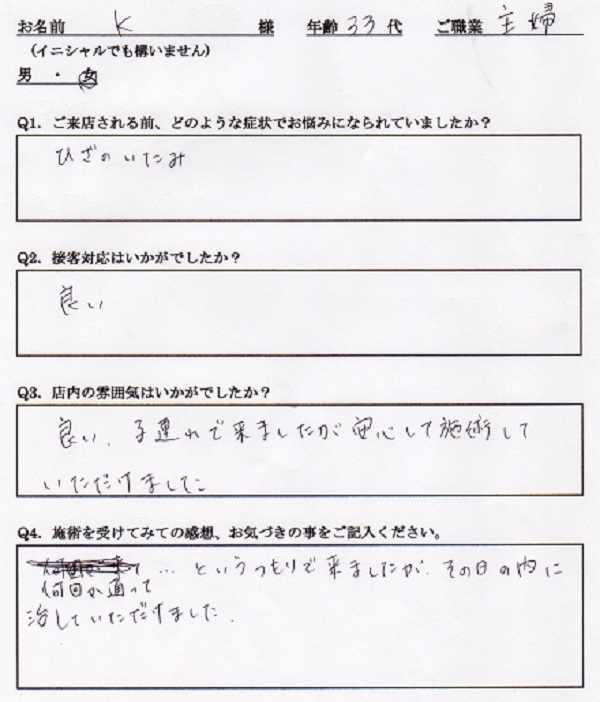 お名前 K 様 年齢 33 代 ご職業 主婦
(イニシャルでも構いません)
男 ・ 女
Q1. ご来店される前、どのような症状でお悩みになられていましたか？
ひざのいたみ
Q2. 接客対応はいかがでしたか？
良い
Q3. 店内の雰囲気はいかがでしたか？
良い、子連れで来ましたが安心して施術して
いただけました
Q4. 施術を受けてみての感想、お気づきの事をご記入ください。
… というつもりで来ましたが、その日の内に
何回か通って
治していただけました。